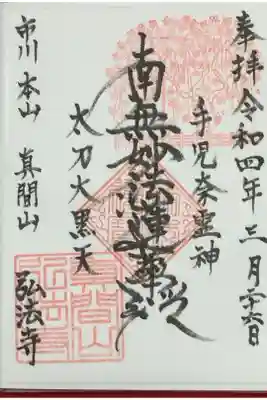 奉拝 令和四年三月二十六日
手児奈霊神
南無妙法蓮華経
太刀大黒天
市川本山 真間山 弘法寺